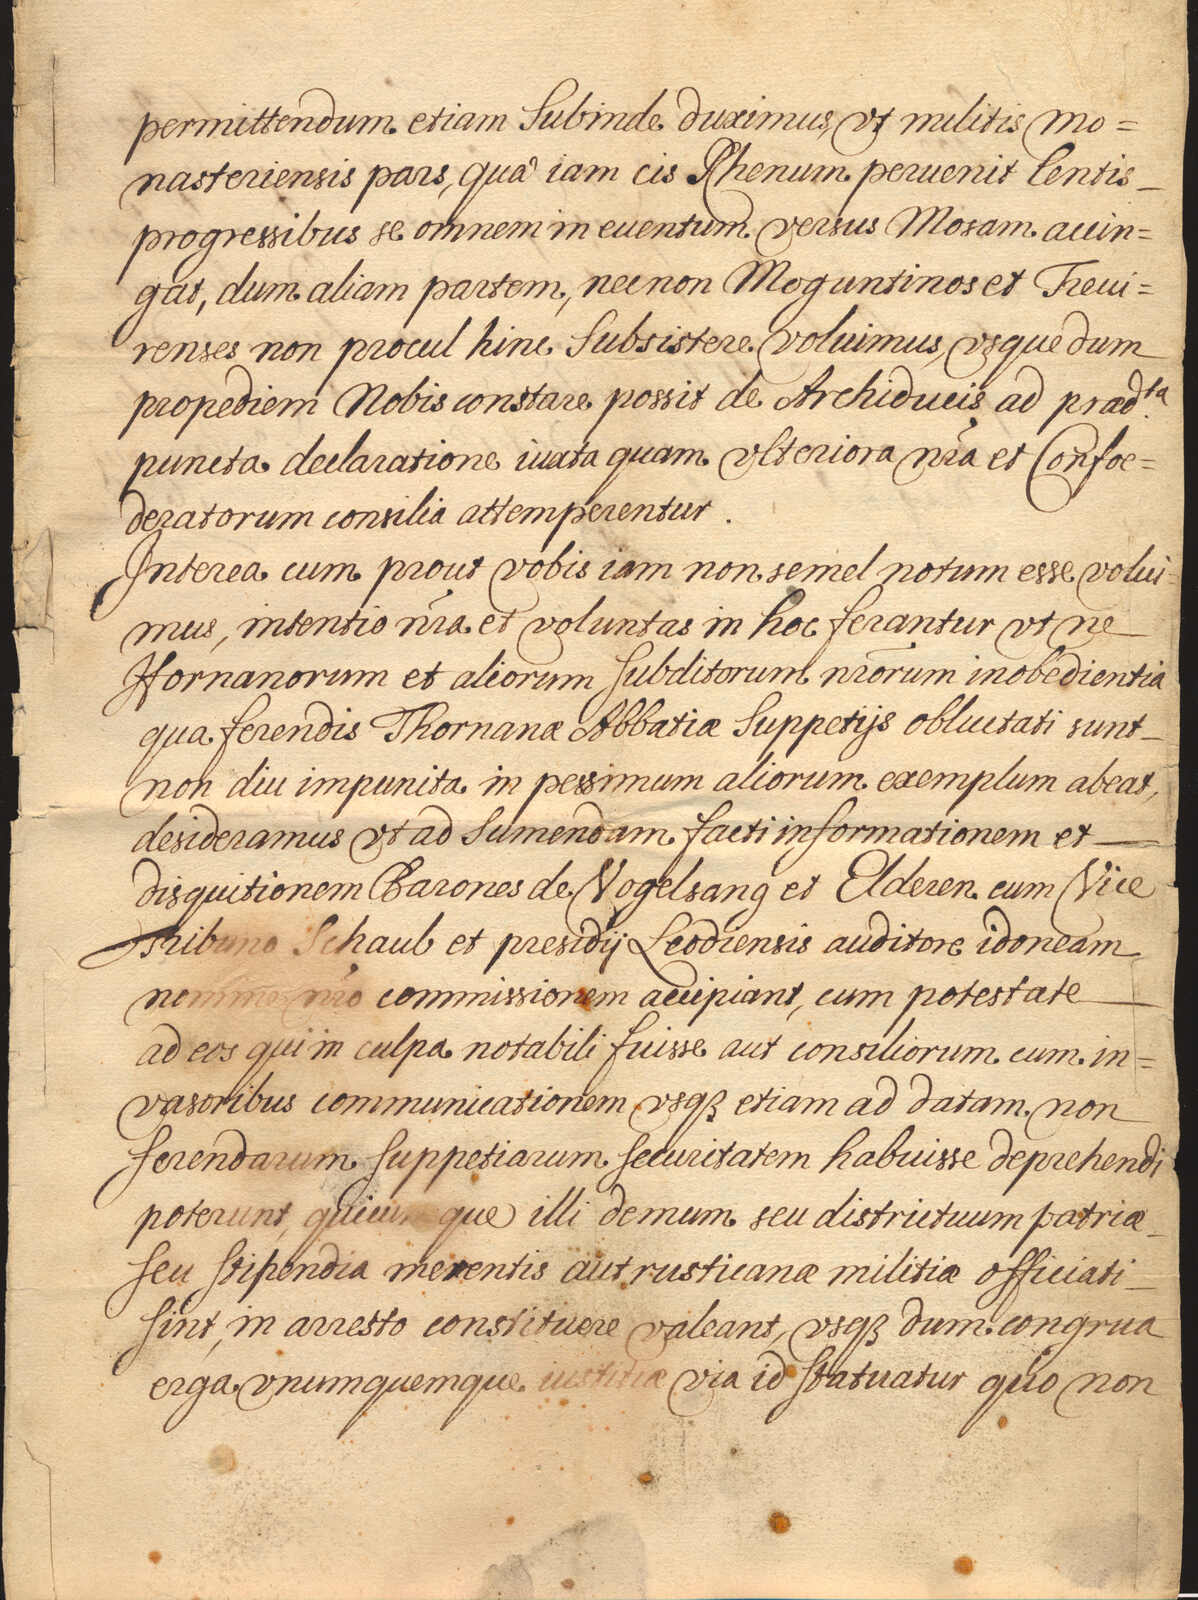 permittendum etiam subinde duximus, vt militis Mo=
nasteriensis pars, quâ iam cis Rhenum peruenit lentis
progressibus se omnem in euentum versus Mosam accin=
gat, dum aliam partem, nec non Moguntinos et Treui=
renses non procul hinc subsistere voluimus, vsque dum
propediem Nobis constare possit de Archiducis ad prædta.
puncta declaratione iuxta quam vlteriora nr̃a et Confoe=
deratorum consilia attemperentur.
Interea cum prout vobis iam non semel notum esse volui=
mus, intentio nr̃a et voluntas in hoc ferantur vt ne
Hornanorum et aliorum subditorum nr̃orum inobedientia
qua ferendis Thornanæ Abbatiæ suppetijs obluctati sunt
non diu impunita in pessimum aliorum exemplum abeat,
desideramus vt ad sumendam facti informationem et
disquitionem Barones de Vogelsang et Elderen cum Vice
tribuno Schaub et presidij Leodiensis auditore idoneam
nomine nr̃o commissionem accipiant, cum potestate
ad eos qui in culpa notabili fuisse aut consiliorum cum in=
vasoribus communicationem vsqz etiam ad datam non
ferendarum suppetiarum securitatem habuisse deprehendi
poterunt, quicunque illi demum seu districtuum patriæ
seu stipendia merentis aut rusticanæ militiæ officiati
sint, in arresto constituere valeant, vsqz dum congrua
erga vnumquemque iustitiæ via id statuatur quo non